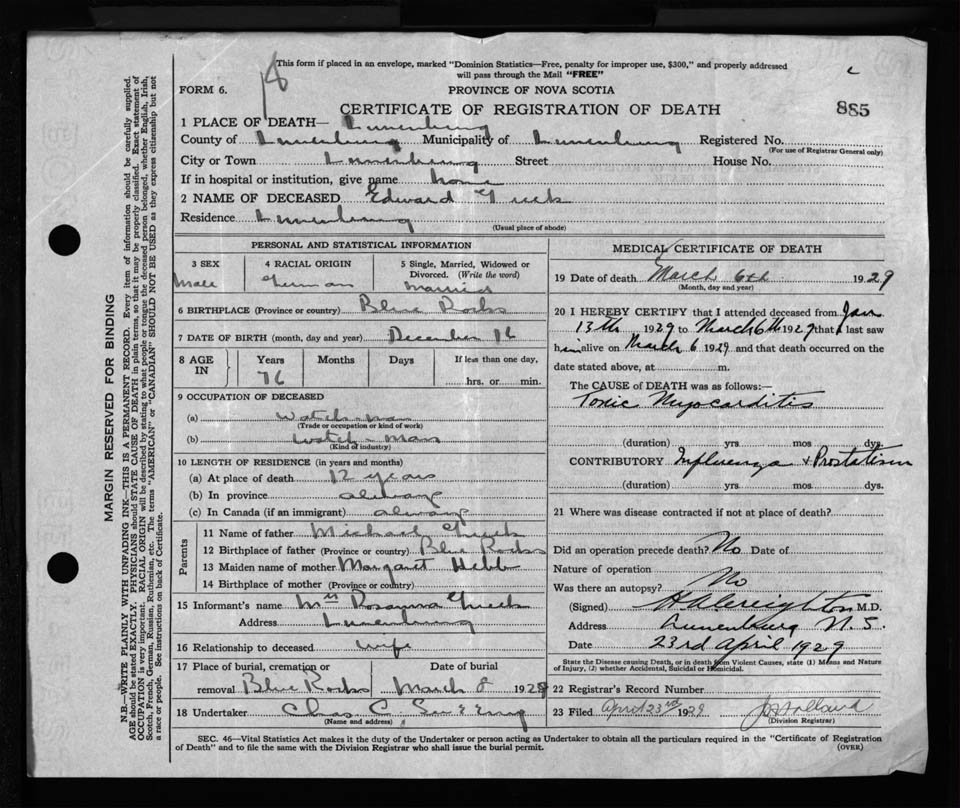 18
This form if placed in an envelope, marked "Dominion Statistics—Free, penalty for improper use, $300," and properly addressed
will pass through the Mail "FREE"
FORM 6. PROVINCE OF NOVA SCOTIA
CERTIFICATE OF REGISTRATION OF DEATH 885
1 PLACE OF DEATH— Lunenburg
County of Lunenburg Municipality of Lunenburg Registered No.
(For use of Registrar General only)
City or Town Lunenburg Street House No.
If in hospital or institution, give name home
2 NAME OF DECEASED Edward
Residence Lunenburg
(Usual place of abode)
PERSONAL AND STATISTICAL INFORMATION
3 SEX 4 RACIAL ORIGIN 5 Single, Married, Widowed or
Divorced. (Write the word)
Male German Married
6 BIRTHPLACE (Province or country) Blue Rocks
7 DATE OF BIRTH (month, day and year) December
8 AGE IN Years Months Days If less than one day,
76 hrs. or min.
9 OCCUPATION OF DECEASED
(a) Watch-man
(Trade or occupation or kind of work)
(b) Watch-man
(Kind of industry)
10 LENGTH OF RESIDENCE (in years and months)
(a) At place of death 12 years
(b) In province always
(c) In Canada (if an immigrant) always
Parents
11 Name of father Michael
12 Birthplace of father (Province or country) Blue Rocks
13 Maiden name of mother Margaret Hebb
14 Birthplace of mother (Province or country)
15 Informant's name Mrs Rosanna
Address Lunenburg
16 Relationship to deceased Wife
17 Place of burial, cremation or Date of burial
removal Blue Rocks March 8 1929
18 Undertaker Chas C
(Name and address)
MEDICAL CERTIFICATE OF DEATH
19 Date of death March 6th 1929
(Month, day and year)
20 I HEREBY CERTIFY that I attended deceased from Jan
13th 1929 to March 6th 1929 that I last saw
him alive on March 6 1929 and that death occurred on the
date stated above, at m.
The CAUSE of DEATH was as follows:—
Toxic Myocarditis
(duration) yrs. mos dys.
CONTRIBUTORY Influenza + Prostatism
(duration) yrs. mos. dys.
21 Where was disease contracted if not at place of death?
Did an operation precede death? No Date of
Nature of operation
Was there an autopsy? No
(Signed) H A Creighton M.D.
Address Lunenburg N.S.
Date 23rd April 1929
State the Disease causing Death, or in death from Violent Causes, state (1) Means and Nature
of Injury, (2) whether Accidental, Suicidal or Homicidal.
22 Registrar's Record Number
23 Filed April 23rd 1929 Holland
(Division Registrar)
SEC. 46—Vital Statistics Act makes it the duty of the Undertaker or person acting as Undertaker to obtain all the particulars required in the "Certificate of Registration
of Death" and to file the same with the Division Registrar who shall issue the burial permit. (OVER)
MARGIN RESERVED FOR BINDING
N.B.—WRITE PLAINLY WITH UNFADING INK—THIS IS A PERMANENT RECORD. Every item of information should be carefully supplied.
AGE should be stated EXACTLY. PHYSICIANS should STATE CAUSE OF DEATH in plain terms, so that it may be properly classified. Exact statement of
OCCUPATION is very important. RACIAL ORIGIN will be described by stating to what people or tongue the deceased person belonged, whether English, Irish,
Scotch, French, German, Russian, Ruthenian, etc. The terms "AMERICAN" or "CANADIAN" SHOULD NOT BE USED as they express citizenship but not
a race or people. See instructions on back of Certificate.